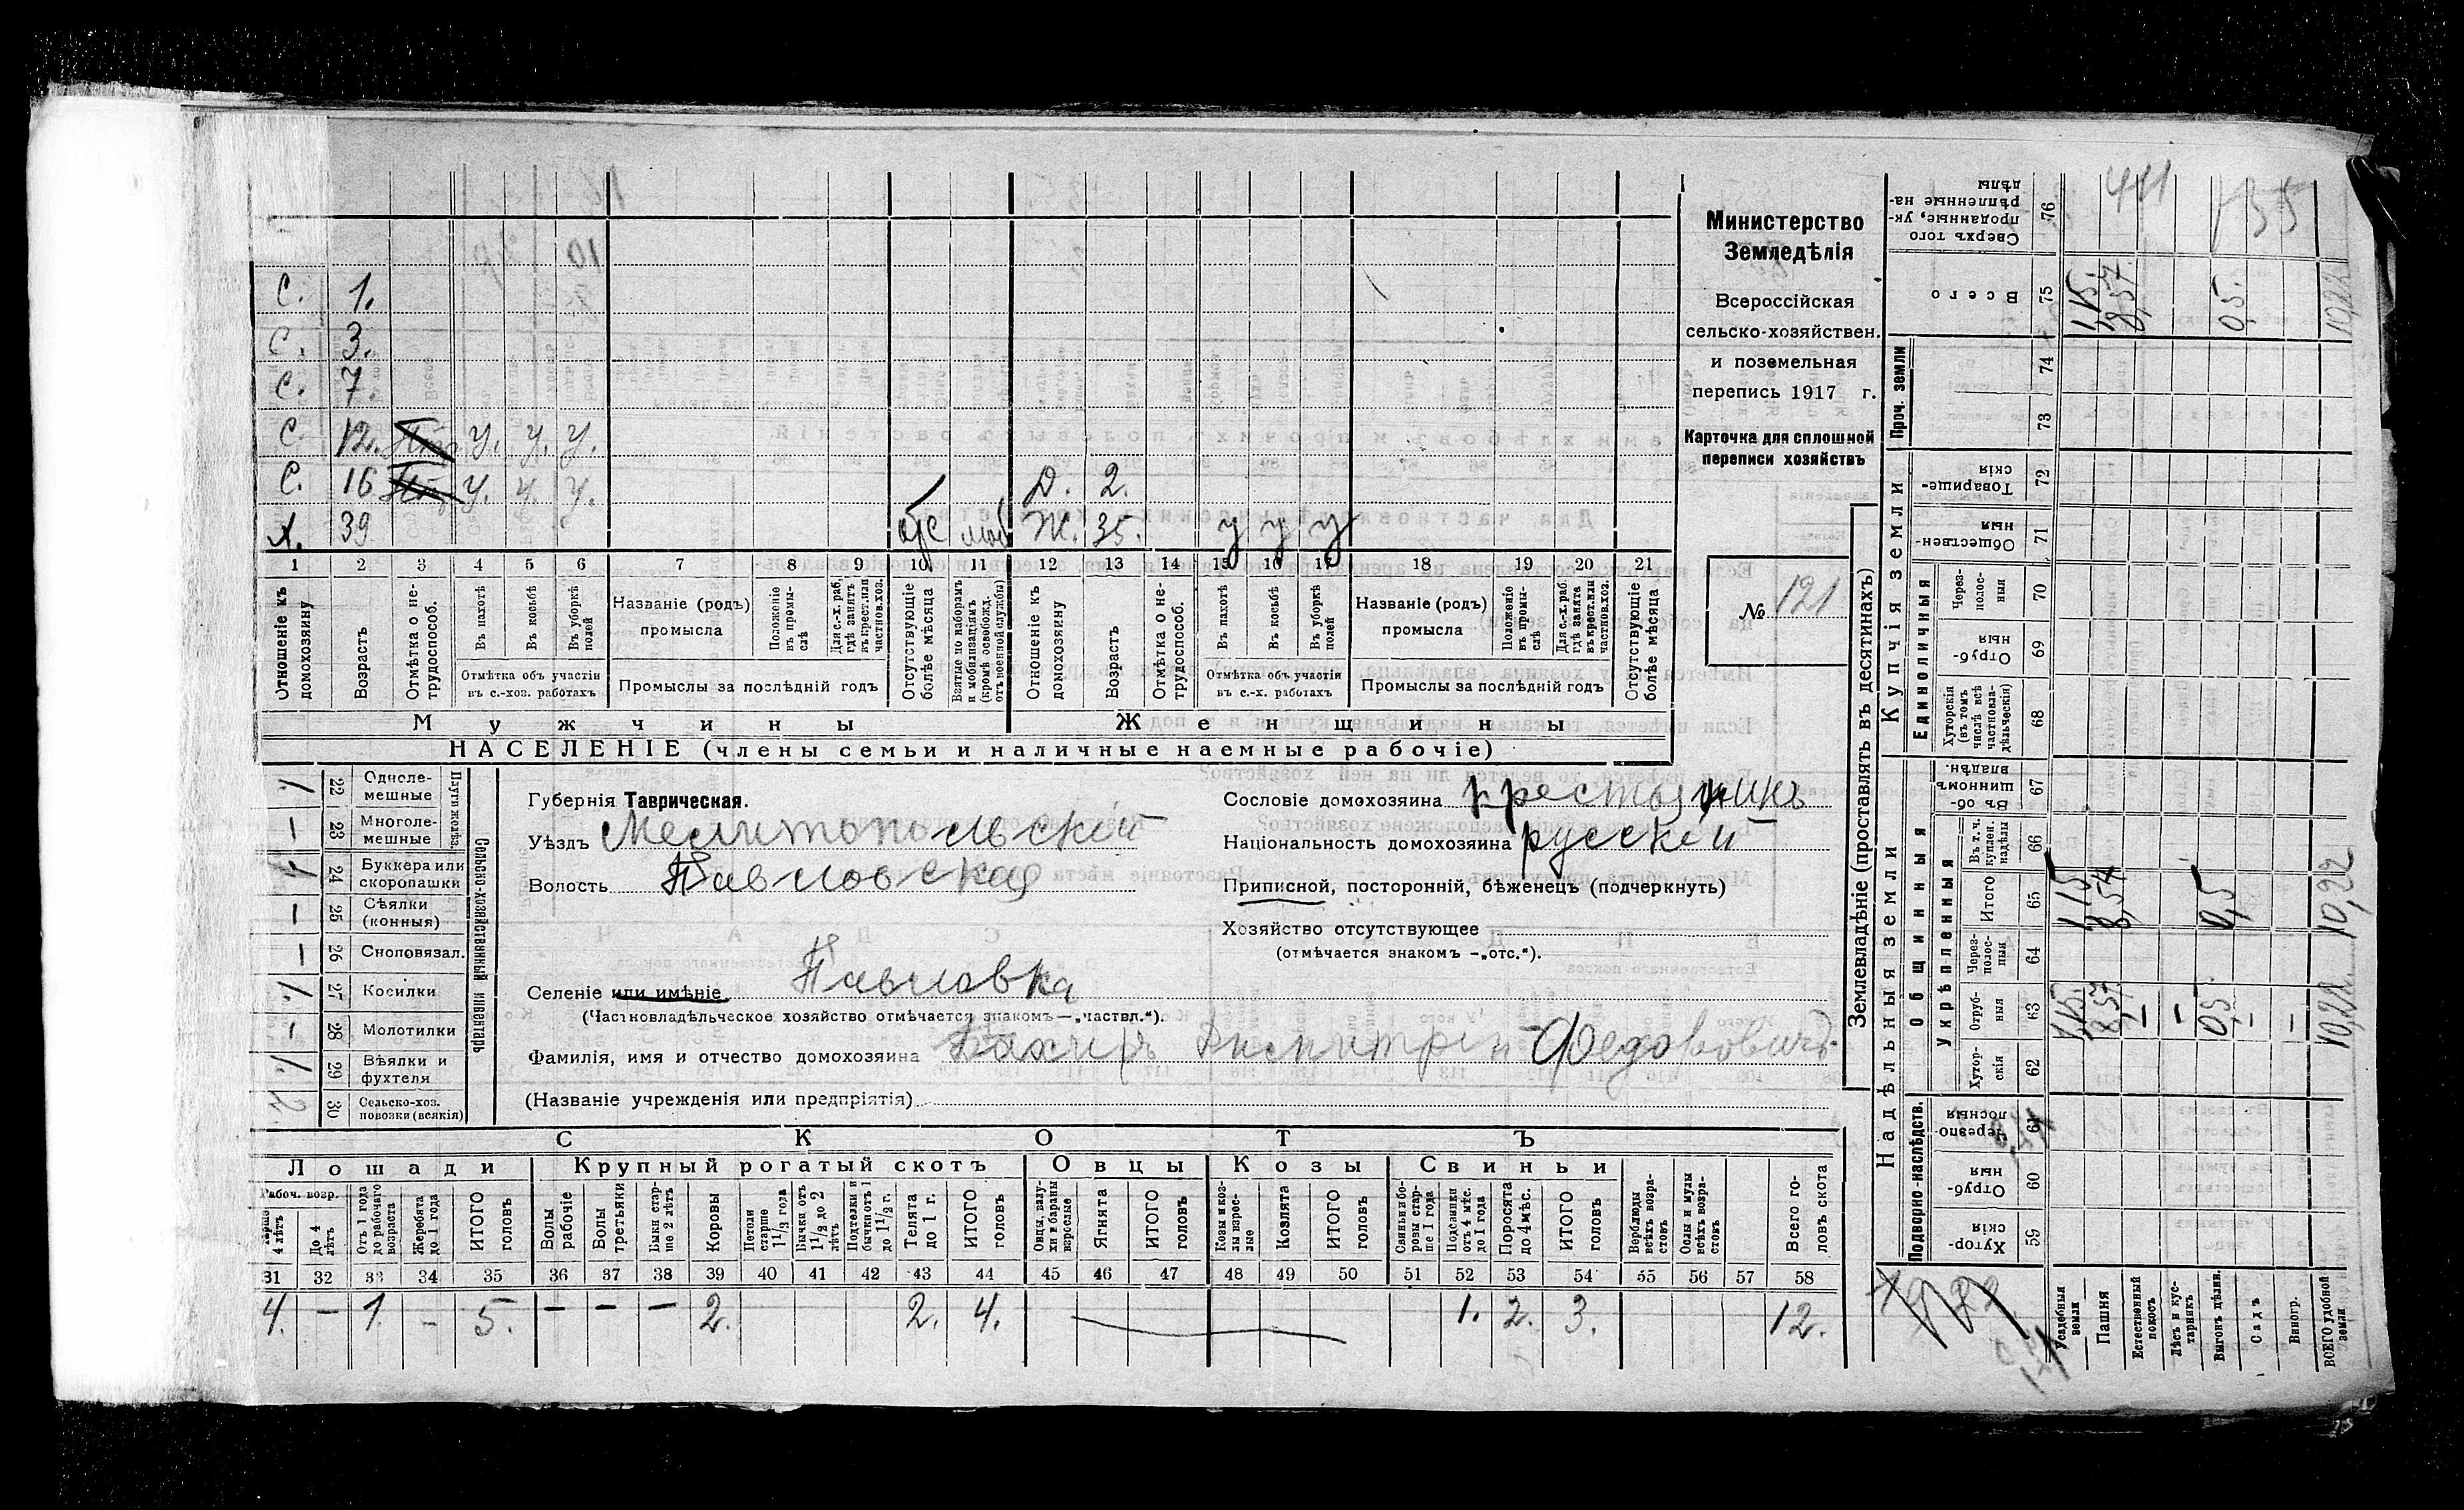 С. 1.
С. 3.
С. 7.
С. 12. у. у. у.
С. 16 у. у. у. Д. 2.
Х. 39 Ж. 35. у у у
1 2 3 4 5 6 7 8 9 10 11 12 13 14 15 16 17 18 19 20 21
Отношеніе къ домохозяину
Возрастъ
Отмѣтка о не-трудоспособ.
Въ пахотѣ
Въ косьбѣ
Въ уборкѣ полей
Отмѣтка объ участіи въ с.-хоз. работахъ
Названіе (родъ) промысла
Положеніе въ промы-слѣ
Для с.-х. раб. гдѣ занятъ въ крест. или частнов. хоз.
Промыслы за послѣдній годъ
Отсутствующіе болѣе мѣсяца
Взятые по наборамъ и мобилизаціямъ (кромѣ освобожд. отъ военной службы)
Отношеніе къ домохозяину
Возрастъ
Отмѣтка о не-трудоспособ.
Въ пахотѣ
Въ косьбѣ
Въ уборкѣ полей
Отмѣтка объ участіи въ с.-х. работахъ
Названіе (родъ) промысла
Положеніе въ промы-слѣ
Для с.-х. раб. гдѣ занята въ крест. или частнов. хоз.
Промыслы за послѣдній годъ
Отсутствующіе болѣе мѣсяца
Мужчины Женщины
НАСЕЛЕНІЕ (члены семьи и наличные наемные рабочіе)
Министерство
Земледѣлія
Всероссійская
сельско-хозяйствен.
и поземельная
перепись 1917 г.
Карточка для сплошной
переписи хозяйствъ
№ 121
Сельско-хозяйственный инвентарь
Плуги желѣз.
1. 22 Одноле-мешные
– 23 Многоле-мешные
1 24 Буккера или скоропашки
– 25 Сѣялки (конныя)
– 26 Сноповязал.
1. 27 Косилки
– 28 Молотилки
1. 29 Вѣялки и фухтеля
2. 30 Сельско-хоз. повозки (всякія)
Губернія Таврическая.
Уѣздъ Мелитопольскій
Волость Павловская
Селеніе или имѣніе Павловка
(Частновладѣльческое хозяйство отмѣчается знакомъ—„частвл.“).
Фамилія, имя и отчество домохозяина Дмитрій Федоровичъ
(Названіе учрежденія или предпріятія)
Сословіе домохозяина крестьянинъ
Національность домохозяина русскій
Приписной, посторонній, бѣженецъ (подчеркнуть)
Хозяйство отсутствующее
(отмѣчается знакомъ –„отс.“).
СКОТЪ
Лошади Крупный рогатый скотъ Овцы Козы Свиньи
Рабоч. возр.
4 лѣтъ
До 4 лѣтъ
Отъ 1 года до рабочаго возраста
Жеребята до 1 года
ИТОГО головъ
Волы рабочіе
Волы третьяки
Быки стар-ше 2 лѣтъ
Коровы
Нетели старше 1 1/2 года
Бычки отъ 1 1/2 до 2 лѣтъ
Подтелки и бычки отъ 1 до 1 1/2 г.
Телята до 1 г.
ИТОГО головъ
Овцы, валу-хи и бараны взрослые
Ягнята
ИТОГО головъ
Козы и коз-лы взрос-лые
Козлята
ИТОГО головъ
Свиньи и бо-ровы стар-ше 1 года
Подсвинки отъ 4 мѣс. до 1 года
Поросята до 4 мѣс.
ИТОГО головъ
Верблюды всѣхъ возра-стовъ
Ослы и мулы всѣхъ возра-стовъ
Всего го-ловъ скота
31 32 33 34 35 36 37 38 39 40 41 42 43 44 45 46 47 48 49 50 51 52 53 54 55 56 57 58
4. – 1. – 5. – – – 2. 2. 4. 1. 2. 3. 12.
Землевладѣніе (проставлять въ десятинахъ)
Надѣльныя земли Купчія земли
Подворно-наслѣдств.
Общинныя
Укрѣпленныя
Единоличныя
Проч. земли
59 Хутор-скія
60 Отруб-ныя
61 Черезпо-лосныя
62 Хутор-скія
63 Отруб-ныя
64 Через-полос-ныя
65 Итого
66 Въ т. ч. куплен. надѣлы
67 Въ об-щинномъ владѣн.
68 Хуторскія (въ томъ числѣ всѣ частновла-дѣльческія)
69 Отруб-ныя
70 Через-полос-ныя
71 Обществен-ныя
72 Товарище-скія
73
74
75 Всего
76 Сверхъ того проданные, ук-рѣпленные на-дѣлы
Усадебныя земли 1,15 1,15 1,15
Пашня 8,57 8,57 8,57
Естественный покосъ –
Лѣсъ и кус-тарникъ –
Выгонъ дѣлян. 0,5 0,5 0,5
Садъ –
Виногр. –
ВСЕГО удобной земли 10,22 10,22 10,22